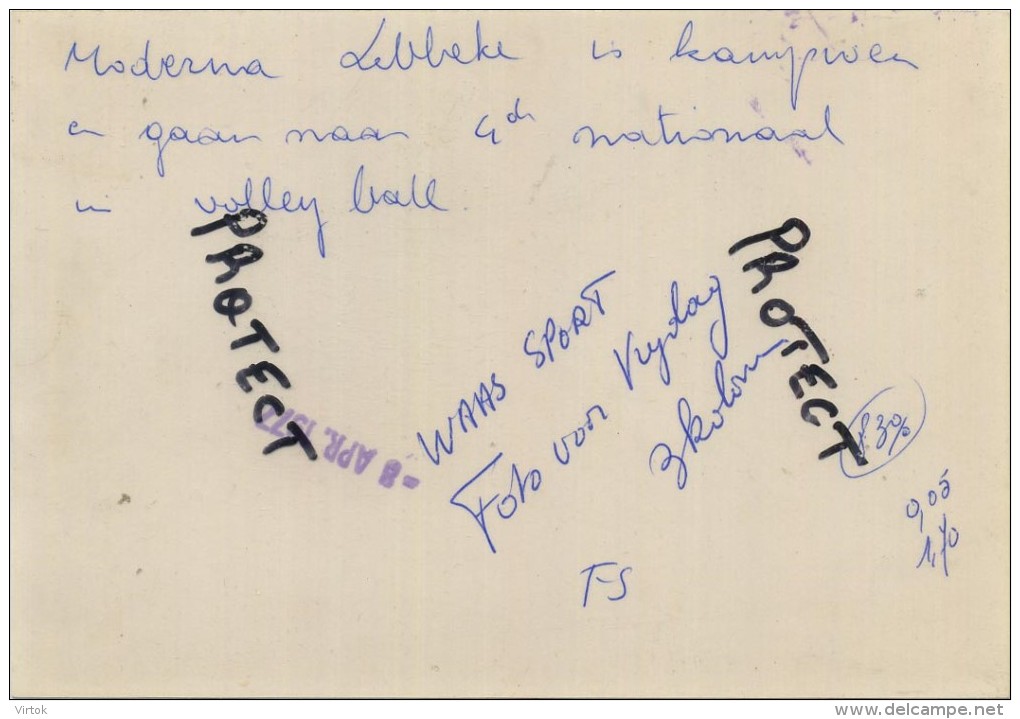 Moderna Lebbeke is kampioen
en gaan naar 4de nationaal
in volley ball
PROTECT
PROTECT
WAAS SPORT
Foto voor Vrijdag
3 kolom
- 8 APR. 197
30%
0,05
1,70
TS
Virtok
delcampe.net